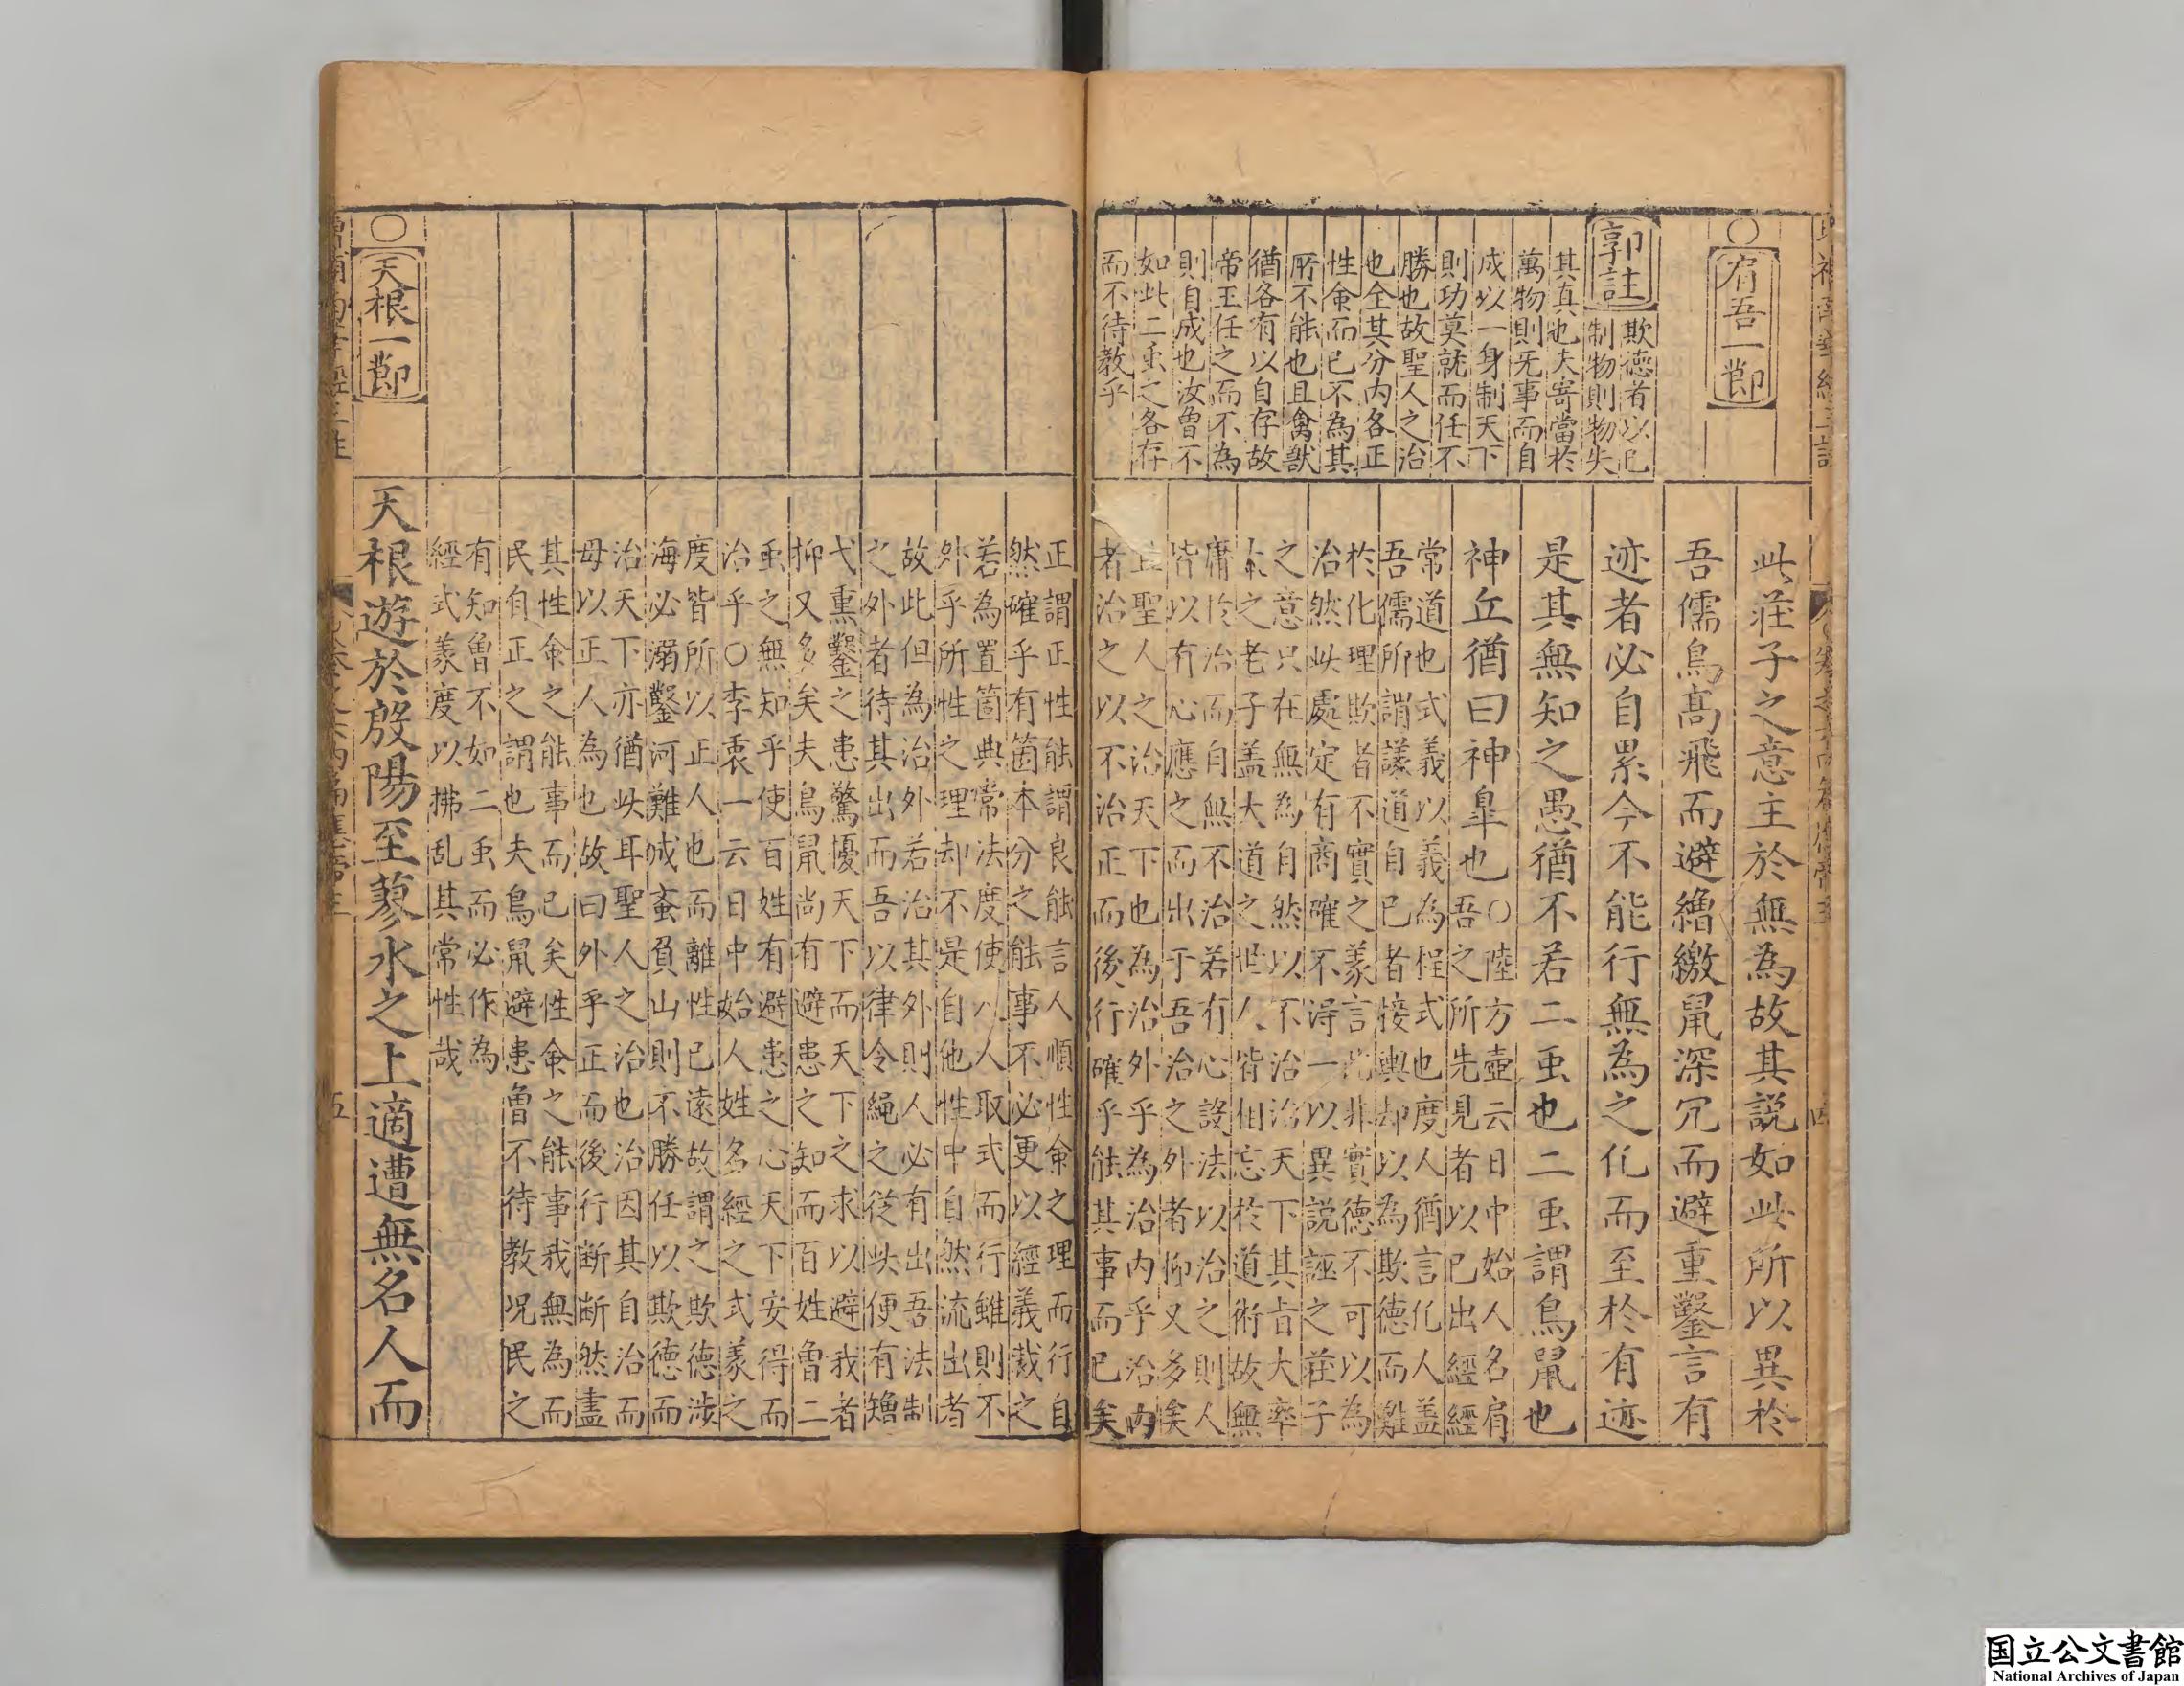 ○有吾一節
郭註
欺德者以已
制物則物失
其真也夫寄當於
萬物則无事而自
成以一身制天下
則功莫就而任不
勝也故聖人之治
也全其分内各正
性命而已不為其
所不能也且禽獸
猶各有以自存故
帝王任之而不為
則自成也汝曾不
如此二虫之各存
而不待教乎
此莊子之意主於無為故其説如此所以異於
吾儒鳥髙飛而避繒繳鼠深冗而避重鑿言有
迹者必自累今不能行無為之化而至於有迹
是其無知之愚猶不若二虫也二虫謂鳥鼠也
神丘猶曰神皐也
○陸方壺云日中始人名肩
吾之所先見者以已出經經
常道也式義以義為程式也度人猶言化人盖
吾儒所謂議道自已者接輿却以為欺德而難
於化理欺者不實之義言此非實德不可以為
治然此處定有商確不得一以異説誣之莊子
之意只在無為自然以不治治天下其旨大率
本之老子盖大道之世人皆相忘於道術故無
庸於治而自無不治若有心設法以治之則人
皆以有心應之而出于吾治之外者抑又多矣
且聖人之治天下也為治外乎為治内乎治内
者治之以不治正而後行確乎能其事而已矣
正謂正性能謂良能言人順性命之理而行自
然確乎有箇本分之能事不必更以經義裁之
若為置箇典常法度使人人取式而行雖則不
外乎所性之理却不是自他性中自然流出者
故此但為治外若治其外則人必有出吾法制
之外者待其出而吾以律令繩之從此便有矰
弋熏鑿之患驚擾天下而天下之求以避我者
抑又多矣夫鳥鼠尚有避患之知而百姓曾二
虫之無知乎使百姓有避患之心天下安得而
治乎○李衷一云日中始人姓名經之式義之
度皆所以正人也而離性已遠故謂之欺德涉
海必溺鑿河難成蚉負山則不勝任以欺德而
治天下亦猶此耳聖人之治也治因其自治而
毋以正人為也故曰外乎正而後行断断然盡
其性命之能事而已矣性命之能事我無為而
民自正之謂也夫鳥鼠避患曾不待教况民之
有知曾不如二虫而必作為
經式義度以拂乱其常性哉
○天根一節
天根遊於殷陽至蓼水之上適遭無名人而
五
国立公文書館
National Archives of Japan